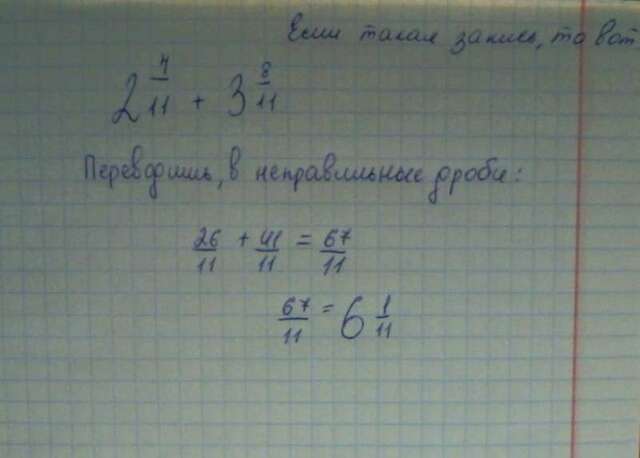 Если такая запись, то вот
2 4/11 + 3 8/11
Переводишь, в неправильные дроби:
26/11 + 41/11 = 67/11
67/11 = 6 1/11